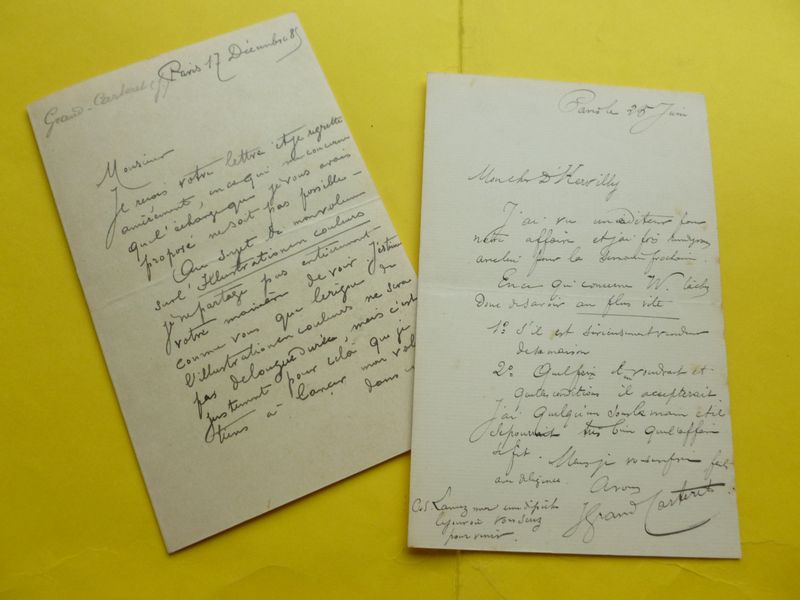 Grand-Carteret (J)
Paris 17 Décembre 85
Monsieur
Je reçois votre lettre et je regrette
amèrement, en ce qui me concerne
que l'échange que je vous avais
proposé ne soit pas possible -
Au sujet de mon volume
sur l'Illustration en couleurs
je ne partage pas entièrement
votre manière de voir J'estime
comme vous que le règne de
l'illustration en couleurs ne sera
pas de longue durée, mais c'est
justement pour cela que je
tiens à lancer mon vol
dans
Paris le 25 Juin
Mon cher D'Hervilly
J'ai vu un éditeur pour
notre affaire et j'ai
pour la semaine prochaine.
En ce qui concerne W.
donc de savoir au plus vite
1º S'il est sérieusement vendeur
de sa maison
2º Quel prix il voudrait et
quelles conditions il accepterait
J'ai quelqu'un sous la main et il
se pourrait très bien que l'affaire
se fit. Mais je vous en prie faites
diligence.
A vous
J Grand Carteret
Lancez moi une dépêche
le jour où vous serez
pour venir.